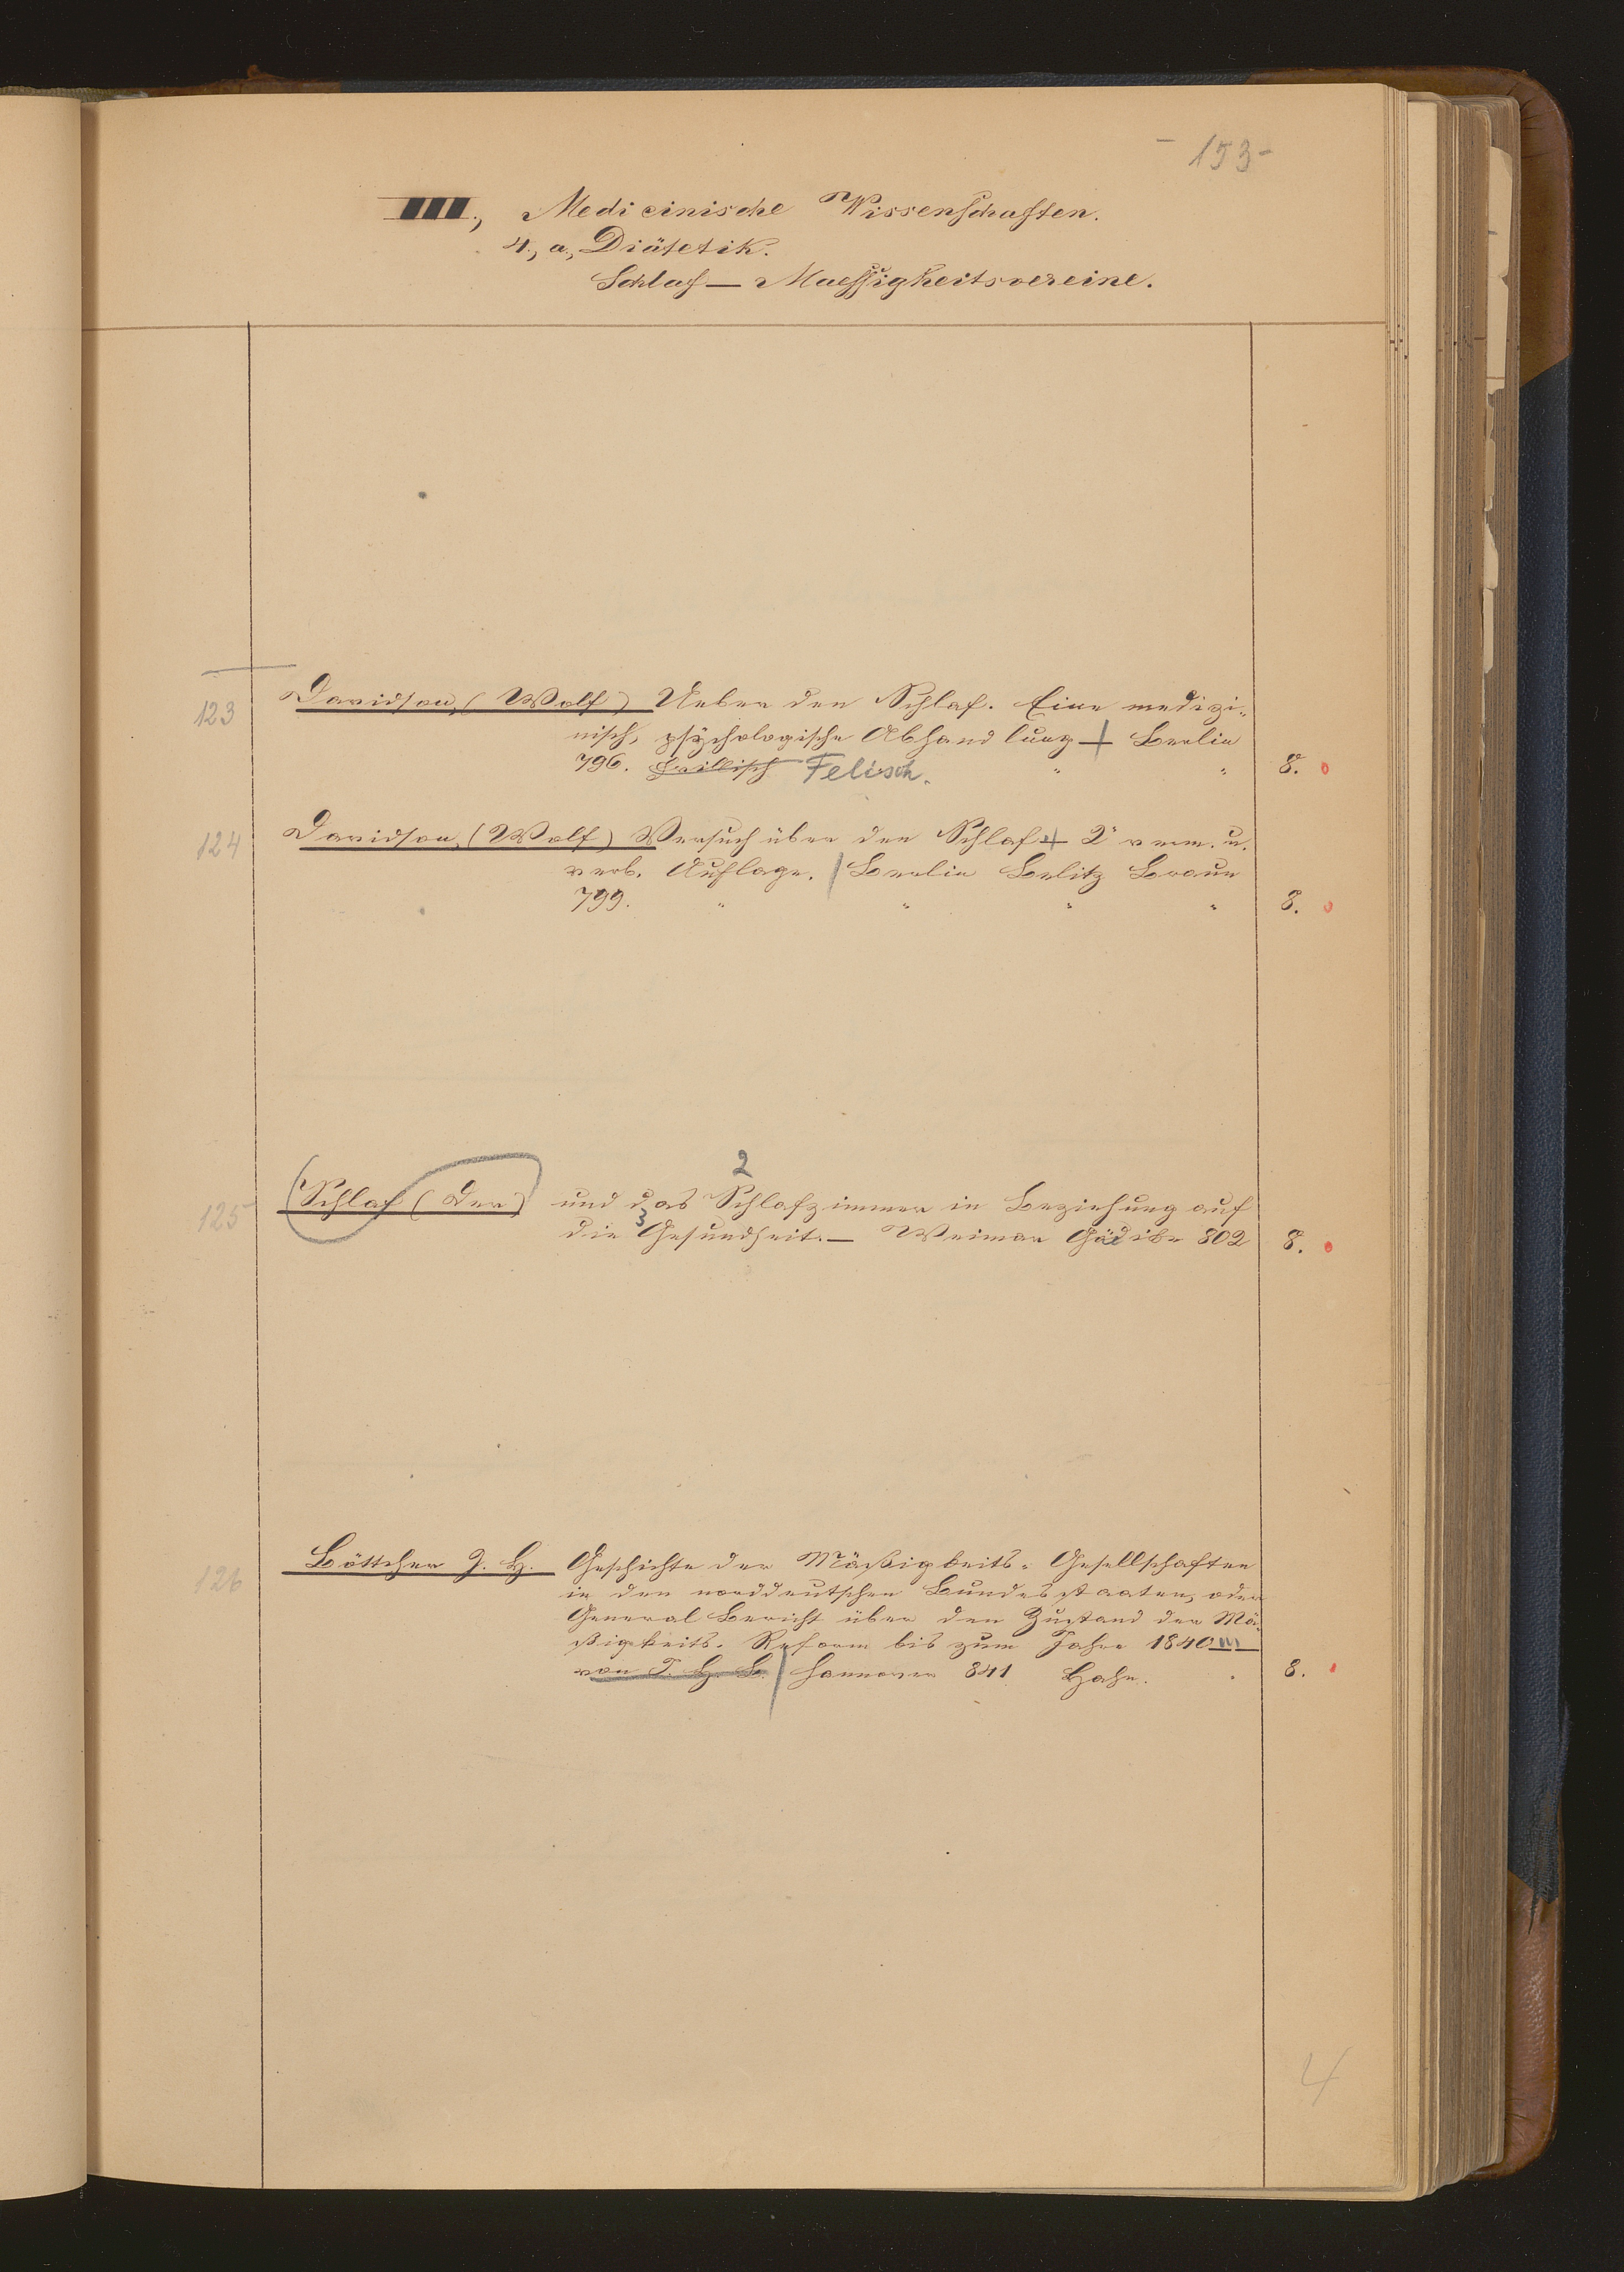 - 153 -
III., Medicinische Wissenschaften.
4., a., Diätetik.
Schlaf — Maessigkeitsvereine.
123 Davidson, (Wolf) Ueber den Schlaf. Eine medizi-
nisch, psÿchologische Abhandlung — Berlin
796. Feillisch Felisch. " " 8.
124 Davidson, (Wolf) Versuch über den Schlaf — 2" verm. u.
verb. Auflage. Berlin Belitz Braun
799. " " " " 8.
2
125 Schlaf (Der) und das Schlafzimmer in Beziehung auf
3
die Gesundheit. — Weimar Gädike 802 8.
126 Böttcher J. H. Geschichte der Mäßigkeits-Gesellschaften
in den norddeutschen Bundesstaaten, oder
General Bericht über den Zustand der Mä-
ßigkeits-Reform bis zum Jahre 1840
von J. H. B. Hannover 841. Hahn. 8.
4